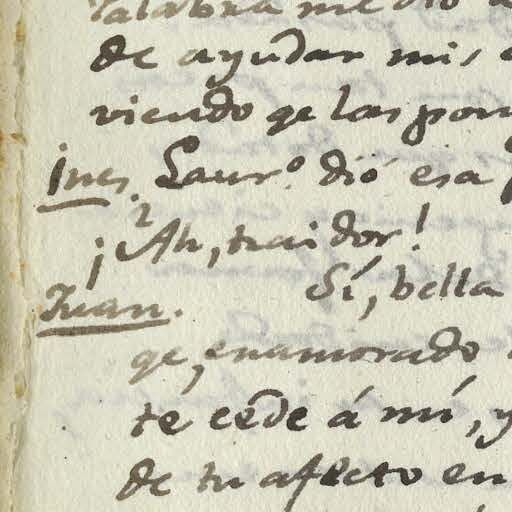 Palabra me dió
de ayudar mis
viendo qe las pon
Ines. Laur.o dió esa
¡Ah, traidor!
Juan. Sí, bella
qe, enamorado
te cede á mí, y
de tu afecto en